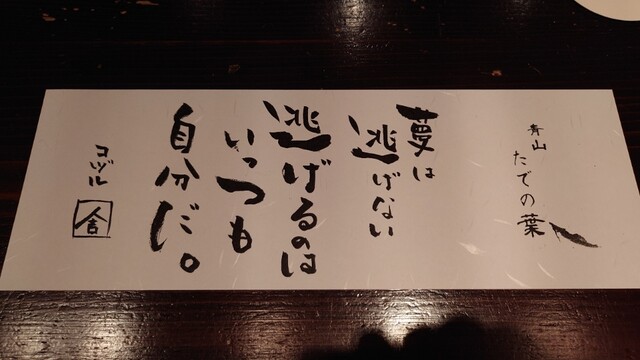 青山
たでの葉
夢は
逃げない
逃げるのは
いつも
自分だ。
コヅル
舎